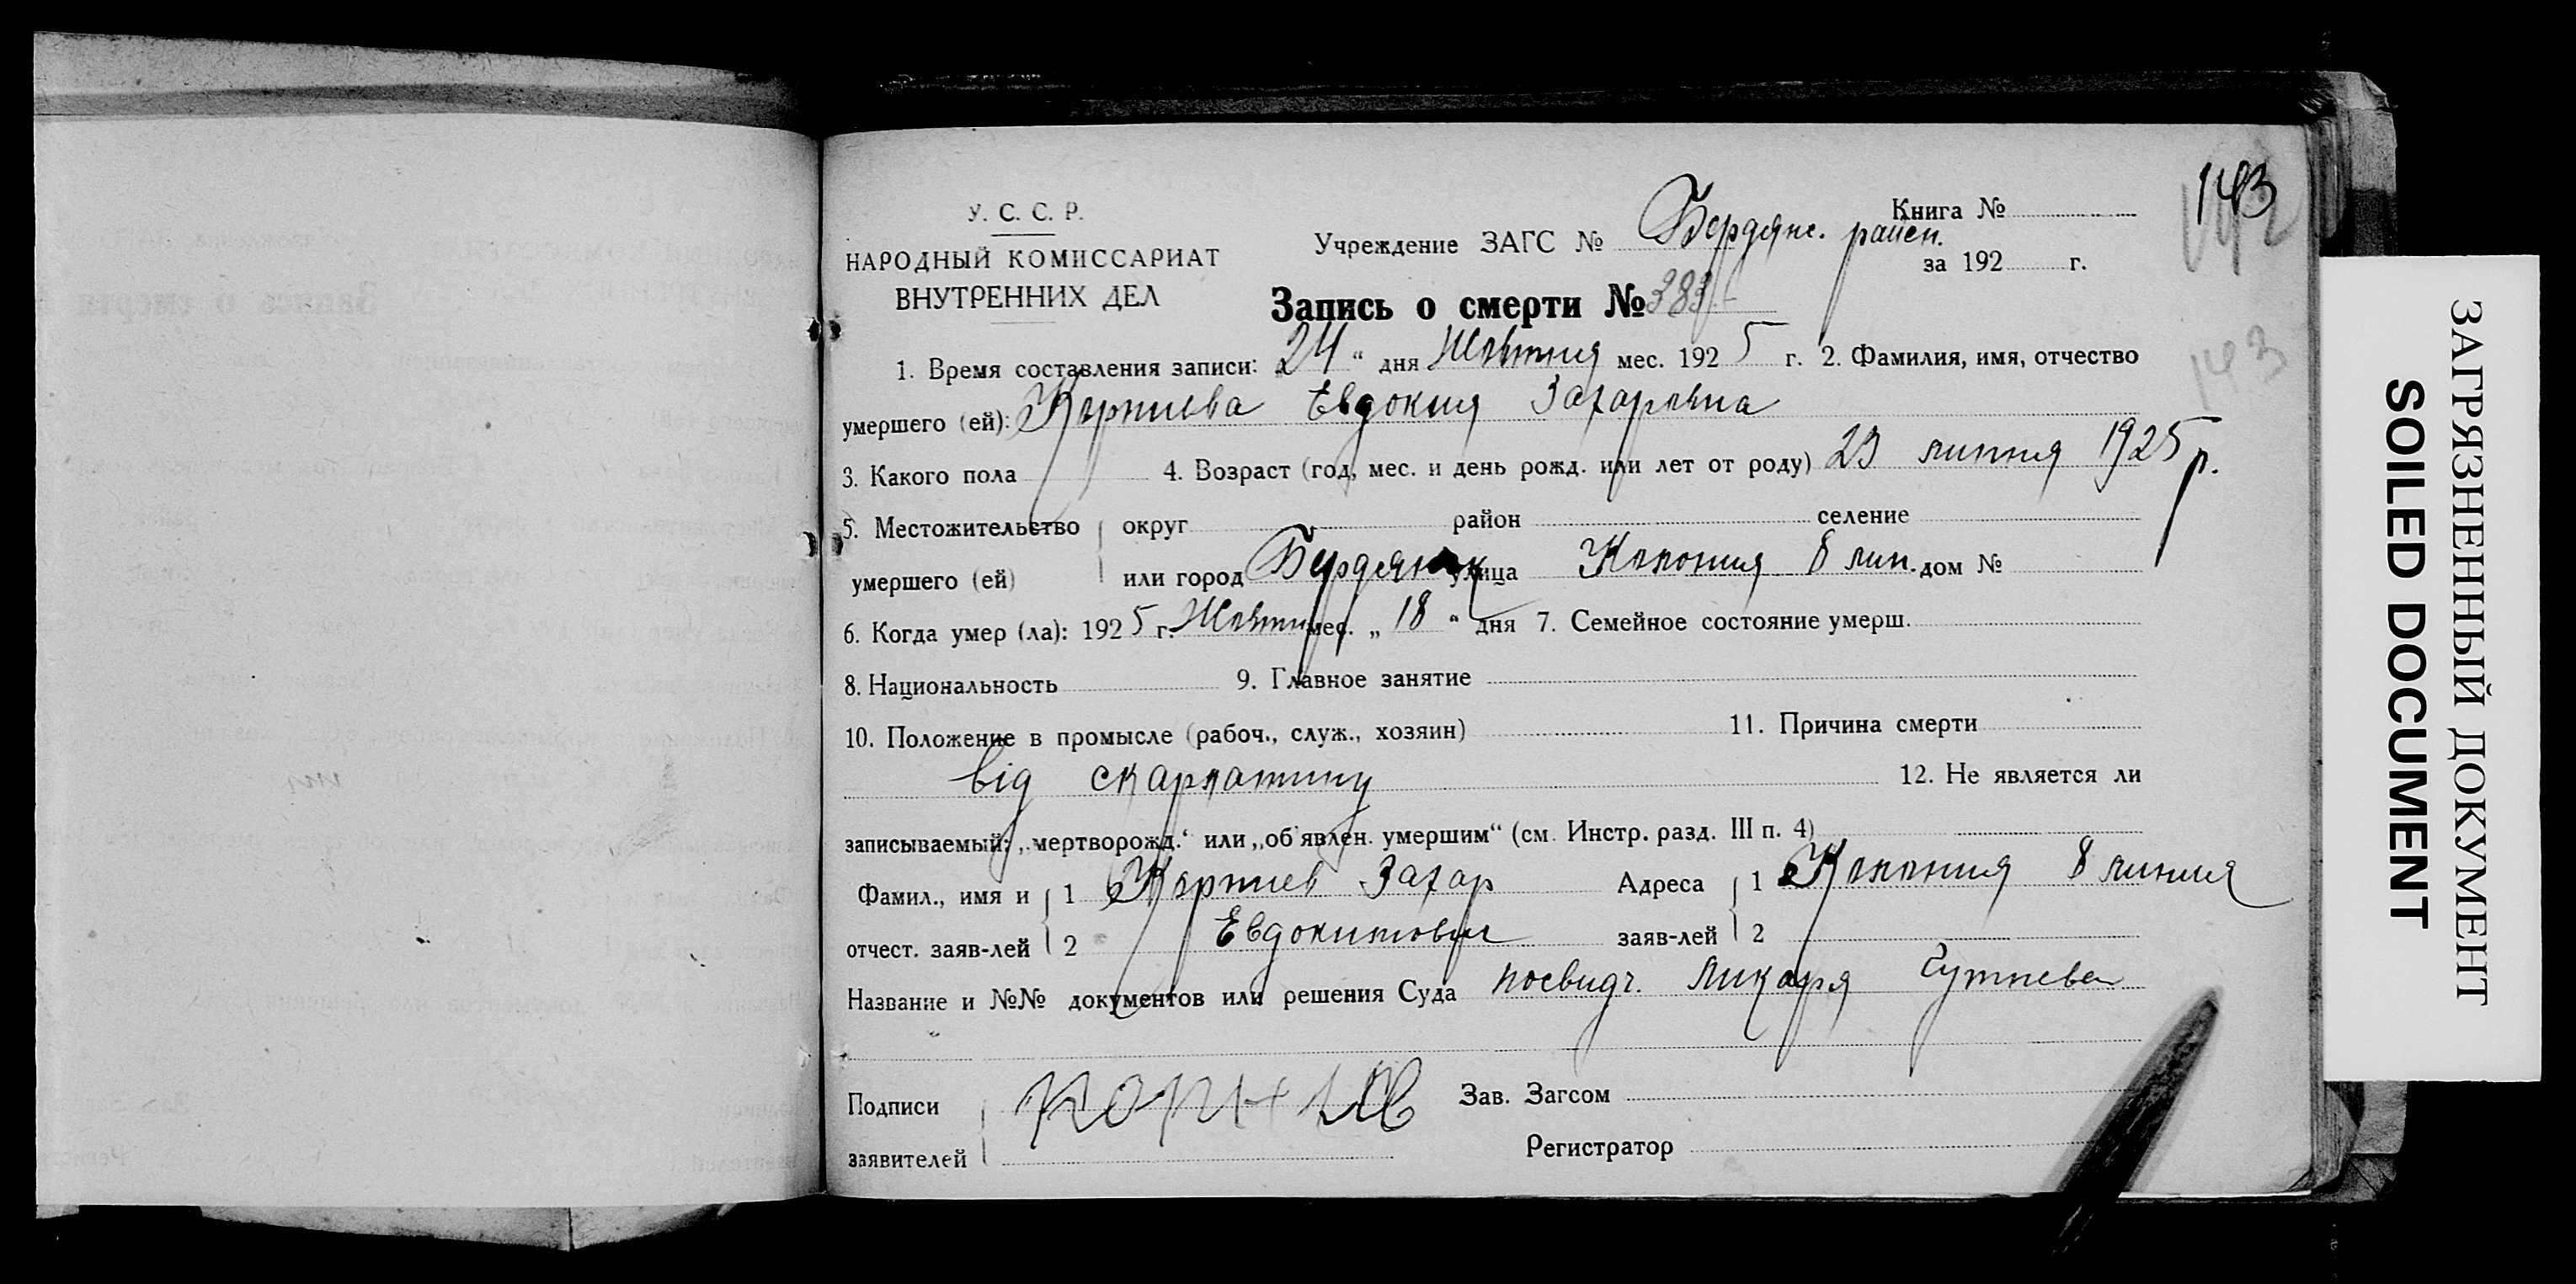 143
У. С. С. Р.
НАРОДНЫЙ КОМИССАРИАТ
ВНУТРЕННИХ ДЕЛ
Учреждение ЗАГС № Бердянс. район.
Книга №
за 192 г.
Запись о смерти № 383
143
1. Время составления записи: „24“ дня Жовтня мес. 1925 г. 2. Фамилия, имя, отчество
умершего (ей): Евдокия Захаровна
3. Какого пола 4. Возраст (год, мес. и день рожд. или лет от роду) 23 липня 1925 р.
5. Местожительство округ район селение
умершего (ей) или город Бердянск улица Колония 8 лин. дом №
6. Когда умер (ла): 1925 г. Жовтн мес. „18“ дня 7. Семейное состояние умерш.
8. Национальность 9. Главное занятие
10. Положение в промысле (рабоч., служ., хозяин) 11. Причина смерти
від скарлатину 12. Не является ли
записываемый: „мертворожд.“ или „об'явлен. умершим“ (см. Инстр. разд. III п. 4)
Фамил., имя и 1 Захар Адреса 1 Колония 8 линия
отчест. заяв-лей 2 Евдокимович заяв-лей 2
Название и №№ документов или решения Суда посвидч. Ликаря
Подписи Зав. Загсом
заявителей Регистратор
ЗАГРЯЗНЕННЫЙ ДОКУМЕНТ
SOILED DOCUMENT